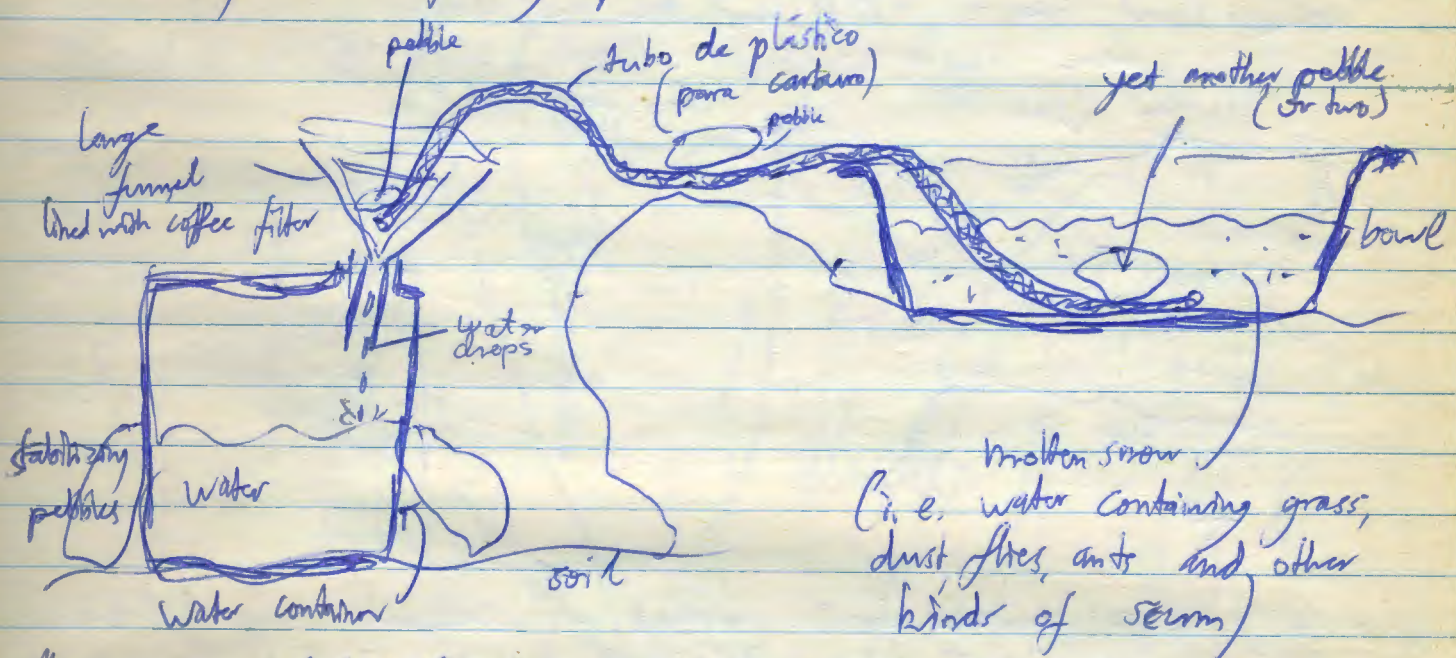 pebble
tubo de plástico
(para carburo)
pebble
yet another pebble
(or two)
large
funnel
lined with coffee filter
bowl
water
drops
stabilizing
pebbles
water
molten snow
(i.e. water containing grass,
dust, flies, ants and other
kinds of scum)
soil
water container